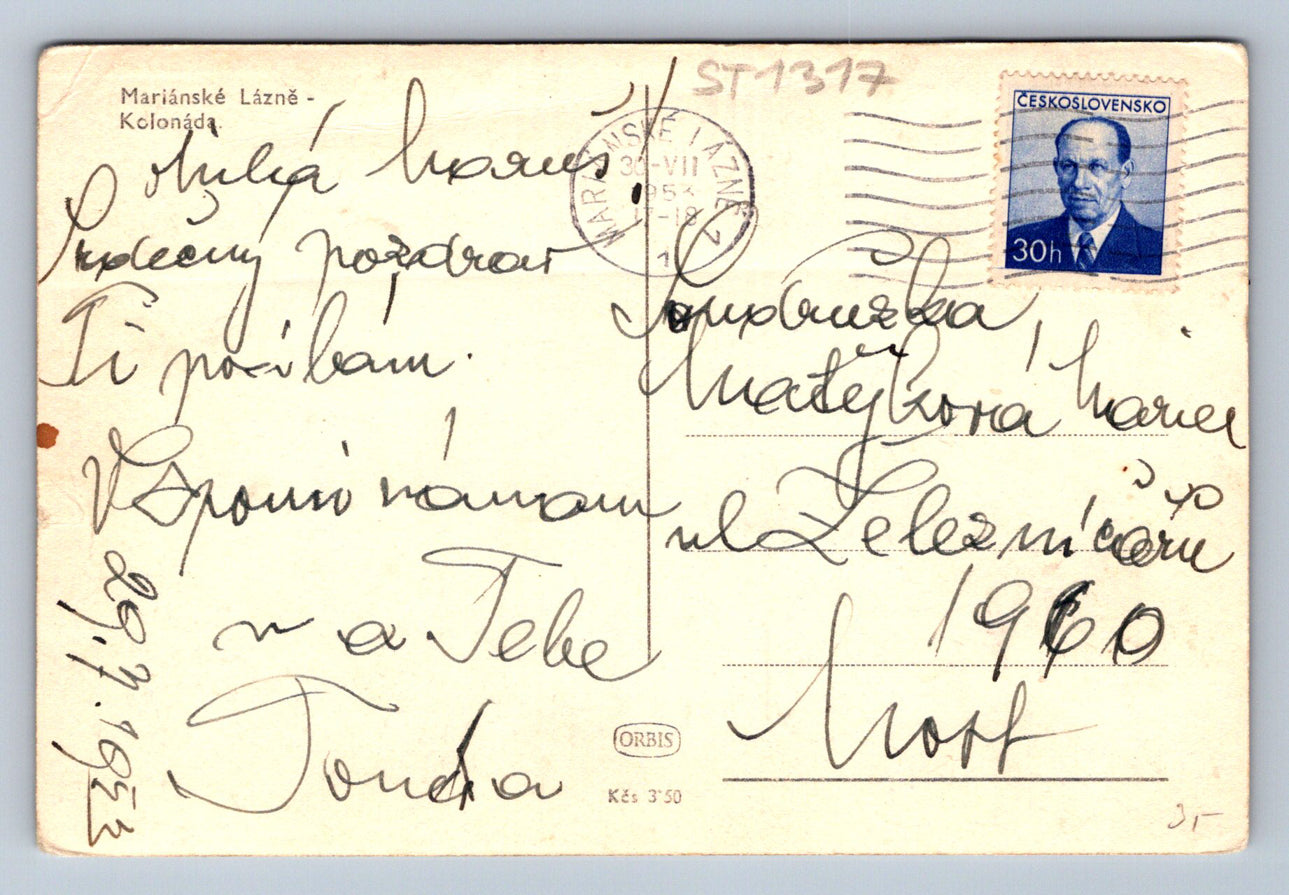 Mariánské Lázně -
Kolonáda.
ST1317
MARIÁNSKÉ LÁZNĚ 1
30-VII
1953
17-18
1
ČESKOSLOVENSKO
30h
Milá
Srdečný pozdrav
Ti posílám.
Vzpomínámam
na Tebe
Tonda
29.7.1953
Soudružka
Matějková Marie
ul Železničářů
1960
Most
ORBIS
Kčs 3·50
3,-